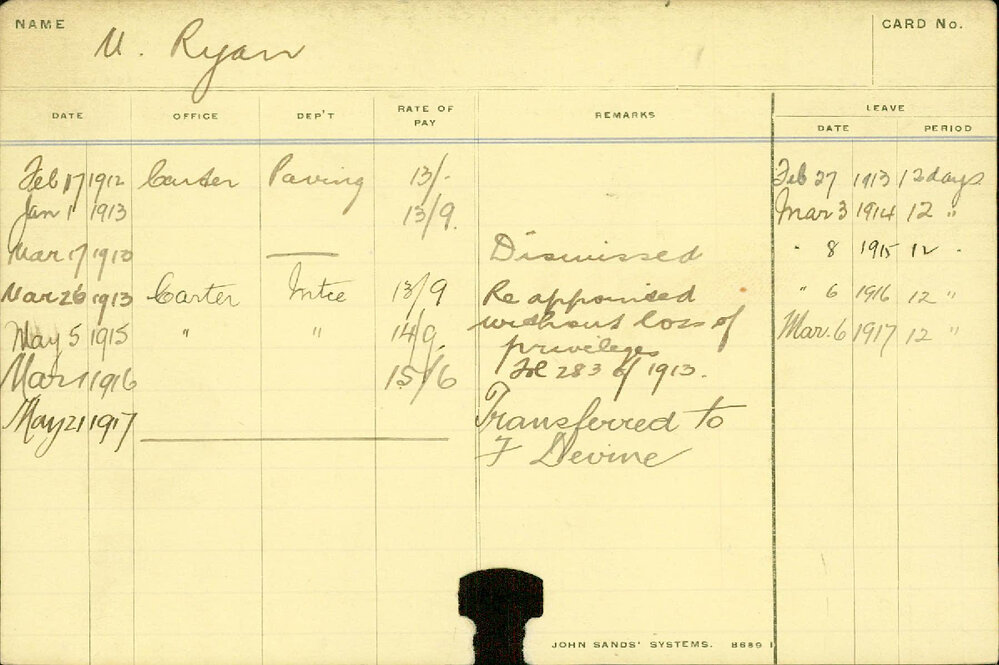 NAME U. Ryan CARD No.
LEAVE
DATE OFFICE DEP'T RATE OF PAY REMARKS DATE PERIOD
Feb 17 1912 Carter Paving 13/- Feb 27 1913 12 days
Jan 1 1913 13/9. Mar 3 1914 12 "
Mar 17 1913 — Dismissed " 8 1915 12 "
Mar 26 1913 Carter Mtce 13/9 Re appointed " 6 1916 12 "
May 5 1915 " " 14/9. without loss of Mar. 6 1917 12 "
privileges
Mar 1 1916 15/6 Fol 283 of 1913.
May 21 1917 Transferred to
F Devine
JOHN SANDS' SYSTEMS. 8689